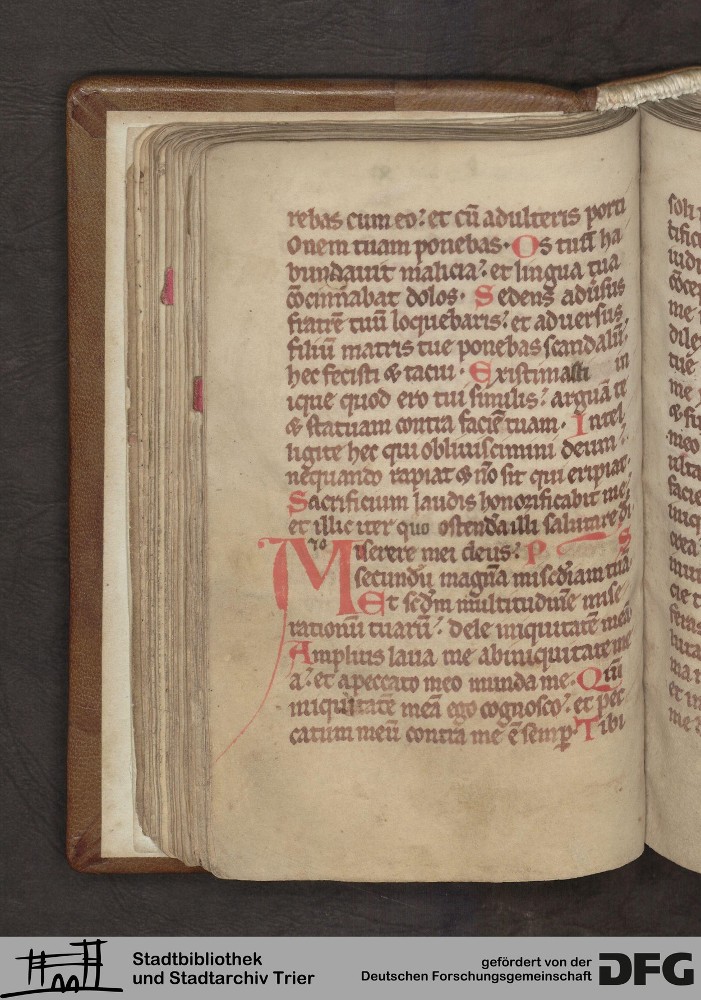 rebas cum eo: et cū adulteris porti
onem tuam ponebas. Os tuū ha
bundauit malicia: et lingua tua
cōcinnabat dolos. Sedens adūsus
fratrē tuū loquebaris: et aduersus
filiū matris tue ponebas scandalū:
hec fecisti & tacui. Existimasti in
ique quod ero tui similis: arguā te
& statuam contra faciē tuam. Intel
ligite hec qui obliuiscimini deum:
nequando rapiat & nō sit qui eripiat.
Sacrificium laudis honorificabit me:
et illic iter quo ostendā illi salutare di
Miserere mei deus: Ps
secundū magnā misc̄diam tuā.
Et sc̄dm multitudinē mise
rationū tuarū: dele iniquitatē meā
Amplius laua me abiniquitate me
a: et apeccato meo munda me. Qm̄
iniquitatē meā ego cognosco: et pec
catum meū contra me ē semp. Tibi
Stadtbibliothek
und Stadtarchiv Trier
gefördert von der
Deutschen Forschungsgemeinschaft
DFG